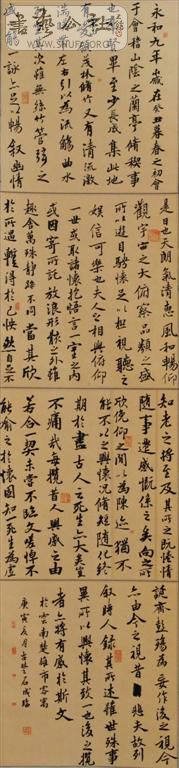 永和九年歲在癸丑暮春之初會
于會稽山陰之蘭亭脩稧事
也群賢畢至少長咸集此地
茂林脩竹又有清流激
湍暎帶左右引以為流觴曲水
列坐其次雖無絲竹管弦之
盛一觴一詠亦足以暢敘幽情
是日也天朗氣清惠風和暢仰
觀宇宙之大俯察品類之盛
所以遊目騁懷足以極視聽之
娛信可樂也夫人之相與俯仰
一世或取諸懷抱悟言一室之內
或因寄所託放浪形骸之外雖
趣舍萬殊靜躁不同當其欣
於所遇暫得於己快然自足不
知老之將至及其所之既惓情
隨事遷感慨係之矣向之所
欣俛仰之間以為陳迹猶不
能不以之興懷況脩短隨化終
期於盡古人云死生亦大矣豈
不痛哉每攬昔人興感之由
若合一契未嘗不臨文嗟悼不
能喻之於懷固知死生為虛
誕齊彭殤為妄作後之視今
亦由今之視昔悲夫故列
敘時人錄其所述雖世殊事
異所以興懷其致一也後之攬
者亦將有感於斯文
於雲南楚雄市寓
庚寅夏月 石成瑞